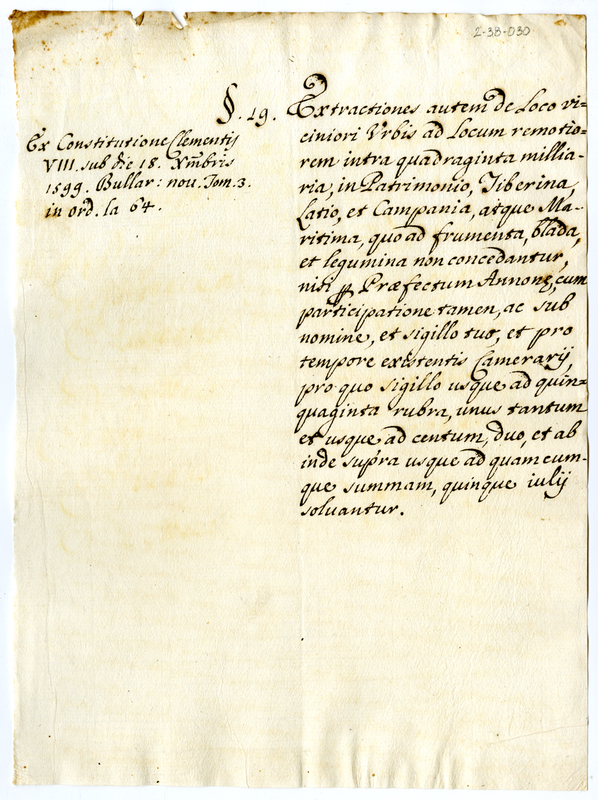 2-38-030
§. 19.
Ex Constitutione Clementij
VIII. sub die 18. Xm̄bris
1599. Bullar: nou. Tom. 3.
in ord. la 64.
Extractiones autem de Loco vi=
ciniori Vrbis ad Locum remotio=
rem intra quadraginta millia=
ria, in Patrimonio, Tiberina,
Latio, et Campania, atque Ma=
ritima, quo ad frumenta, blada,
et legumina non concedantur,
nisi ꝑ Præfectum Annonę, cum
participatione tamen, ac sub
nomine, et sigillo tuo, et pro
tempore existentis Camerarij,
pro quo sigillo usque ad quin=
quaginta rubra, unus tantum
et usque ad centum, duo, et ab
inde supra usque ad quamcum=
que summam, quinque iulij
soluantur.